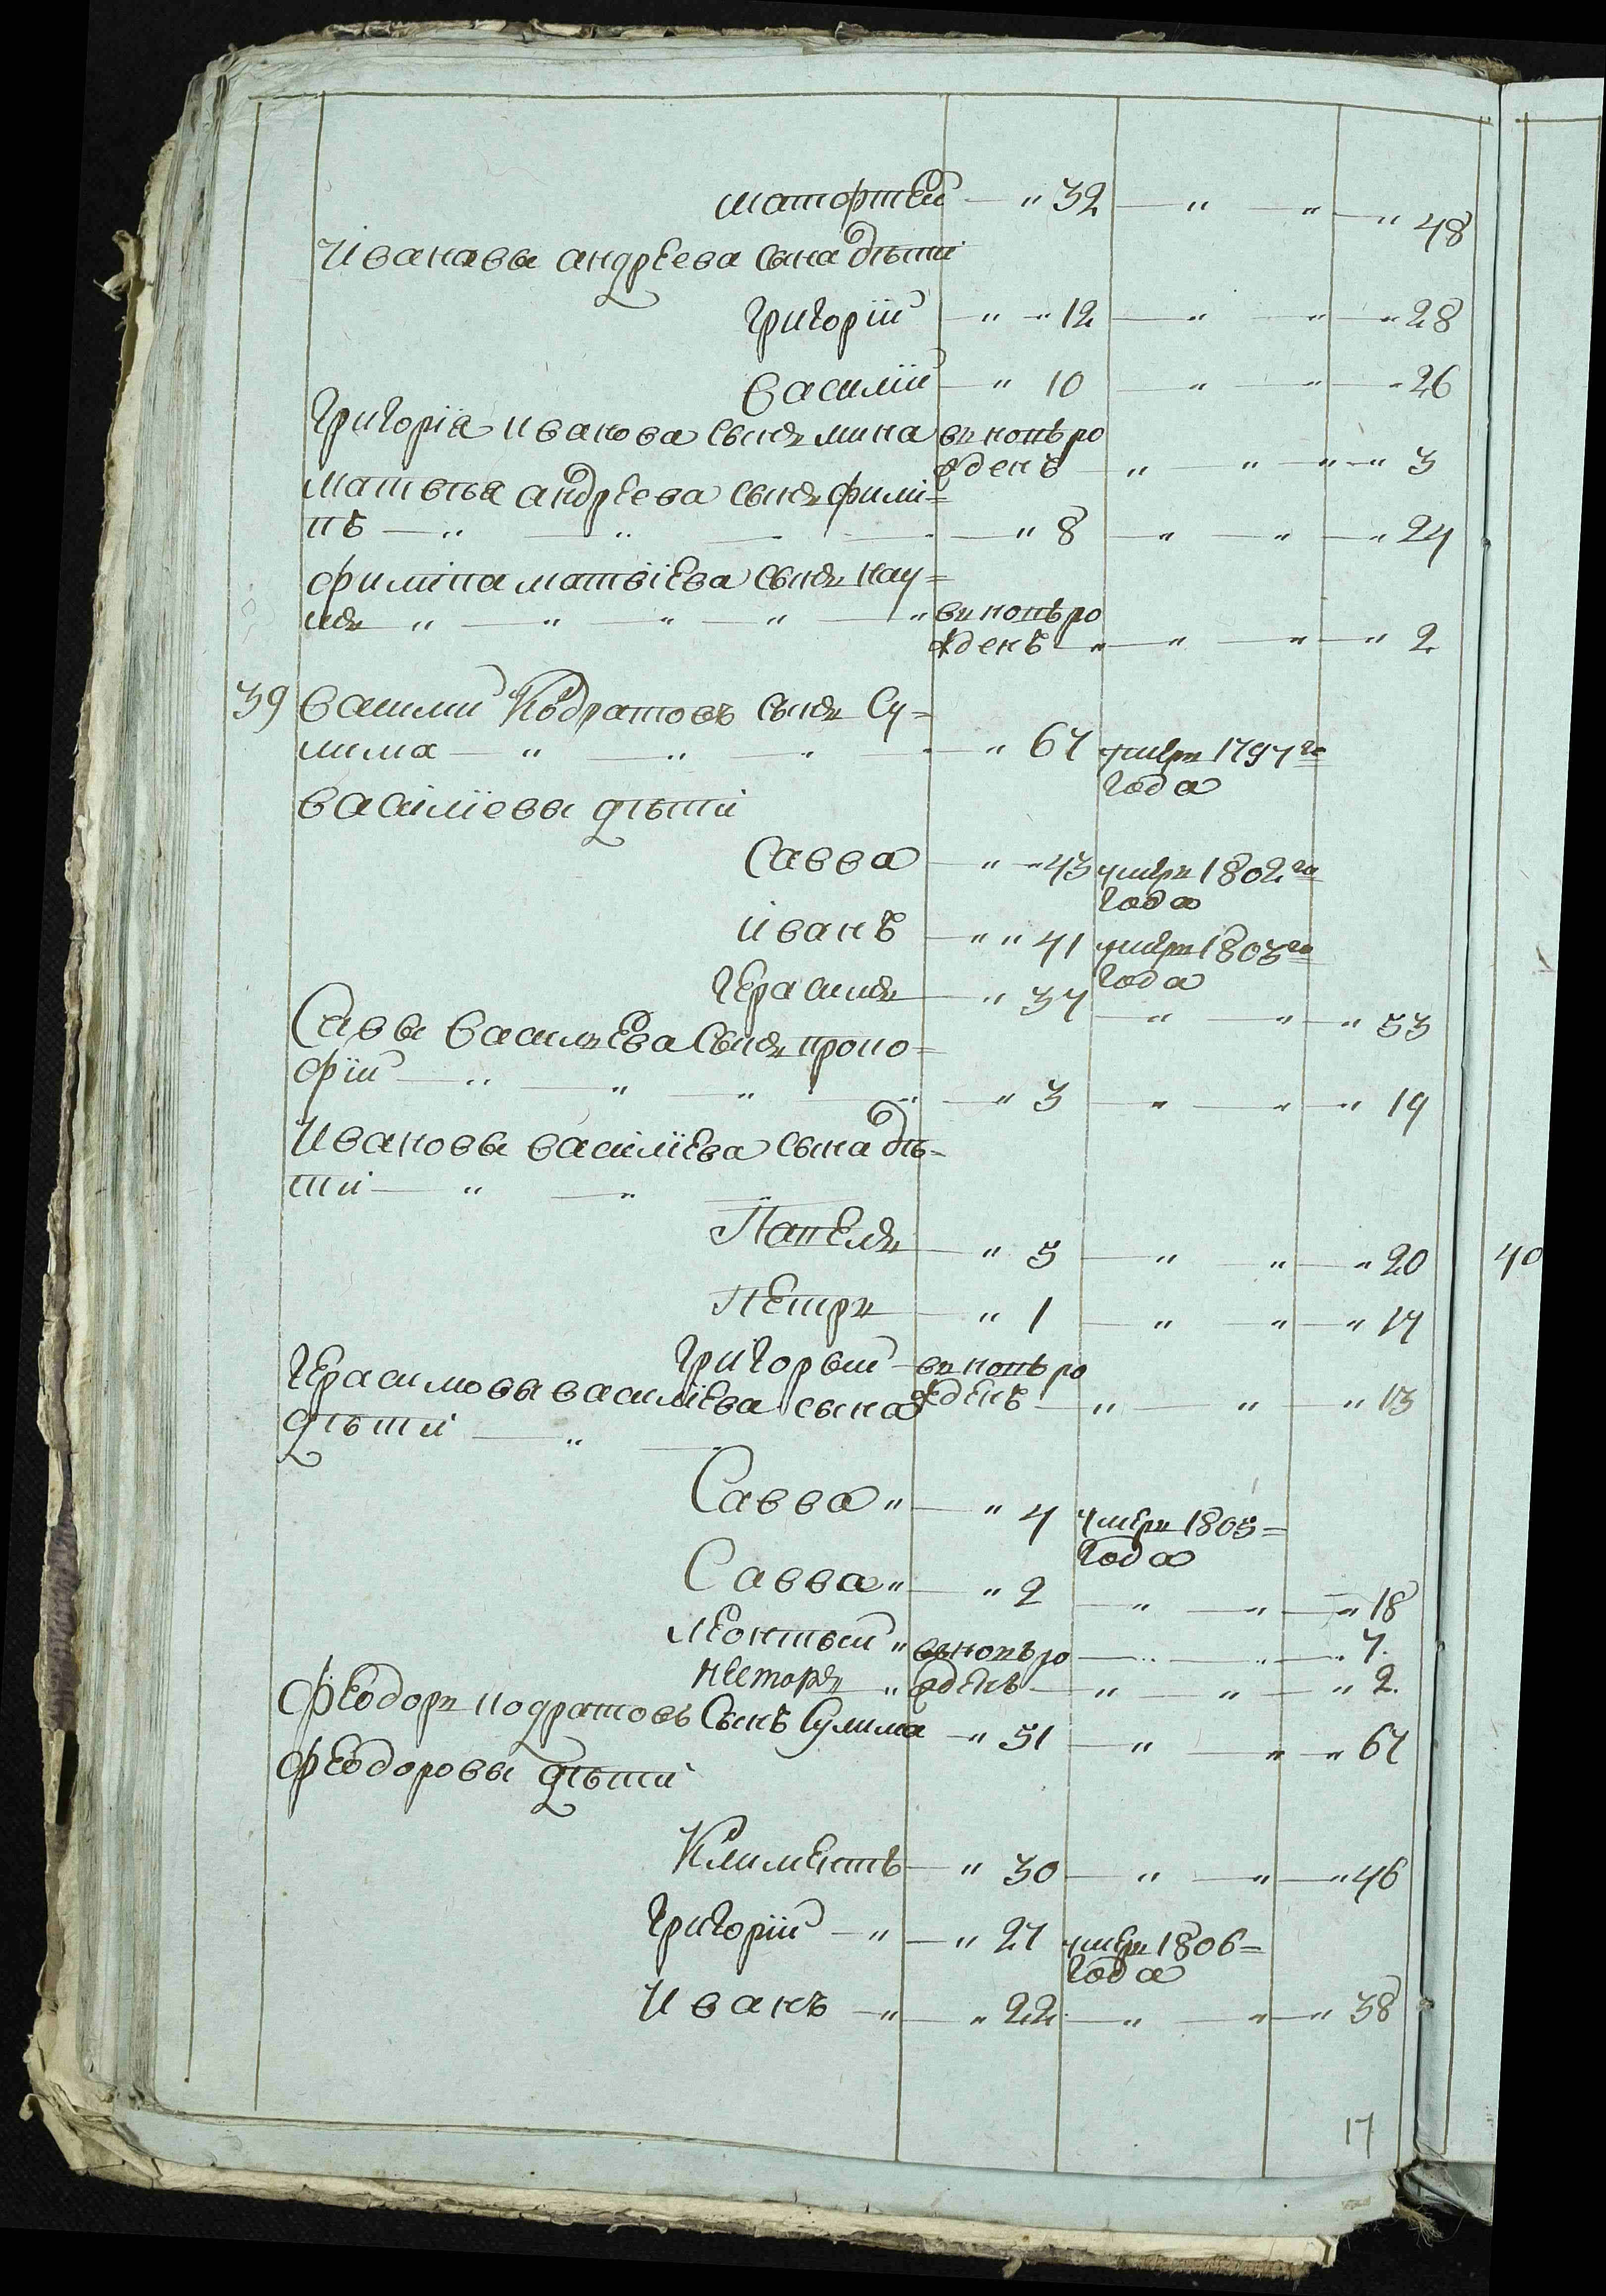 матофтей — " 32 — " — " — " 48
Ивановы андрѣева сына дѣти
Григорій — " — " 12 — " — " — " 28
Василій — " 10 — " — " — " 26
Григорія иванова сынъ мина въ нонѣ ро
жденъ — " — " — " — " 3
матвѣя андрѣева сынъ филі=
пъ — " — " — " 8 — " — " — " 24
филіпа матвіева сынъ нау=
мъ " — " — " — " — " въ нонѣ ро
жденъ — " — " — " — " 2
39 Василій Кодратовъ сынъ Су=
лима — " — " — " — " 67 умеръ 1797го
года
василіевы дѣти
Савва — " — " 43 умеръ 1802го
года
иванъ — " " 41 умеръ 1803го
года
Герасимъ — " 37 — " — " — " 53
Савы василъева сынъ проно=
фій — " — " — " — " 3 — " — " — " 19
Ивановы василіева сына дѣ=
ти — " — " — "
Папелъ — " 5 — " — " — " 20
Петръ — " 1 — " — " — " 17
Григорьий въ нонѣ ро
жденъ — " — " — " 13
Герасимовы василіева сына
дѣти — " —
Савва " — " 4 умеръ 1805=
года
Савва " — " 2 — " — " — " 18
Леонтьий " въ нонѣ ро — " — " — " 7.
нестеръ " жденъ — " — " — " 2.
Феодоръ кодратовъ Сынъ Сулима — " 51 — " — " — " 67
Феодоровы дѣти
Климентъ — " 30 — " — " — " 46
Григорій — " — " 27 умеръ 1806=
года
Иванъ — " — " 22 — " — " — " 38
17
40